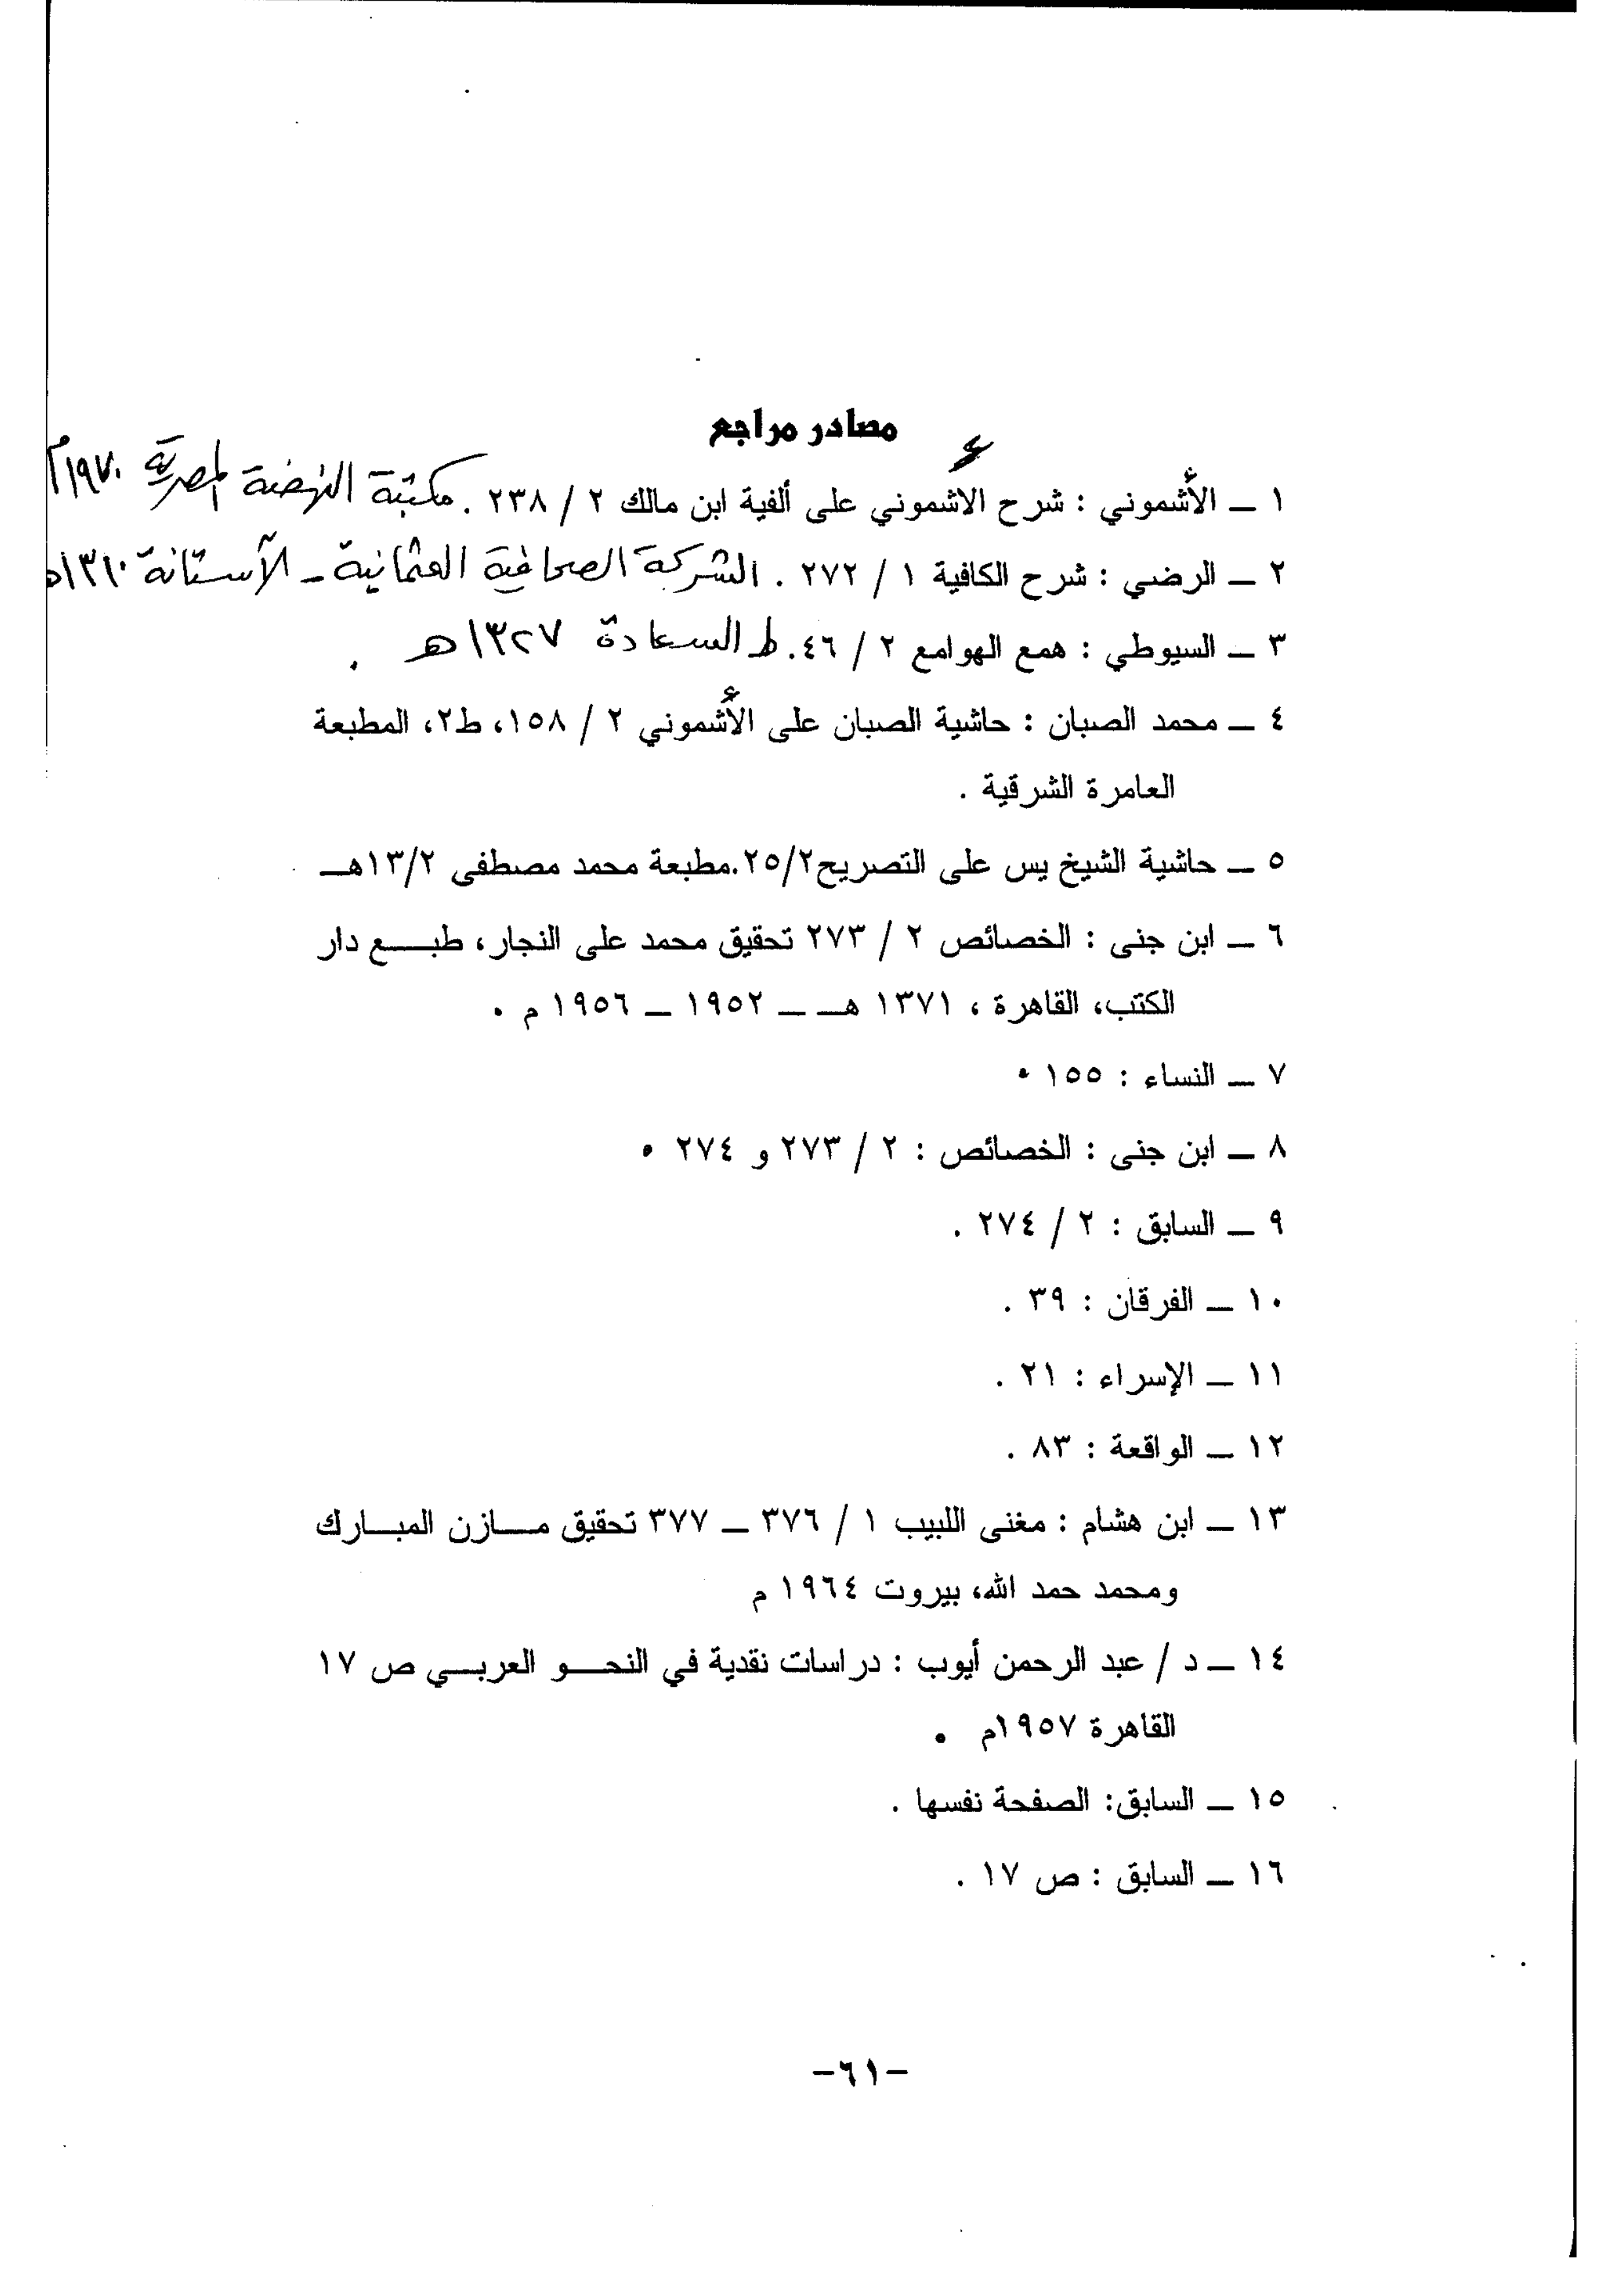 مصادر مراجع
١ ـ الأشموني : شرح الأشموني على ألفية ابن مالك ٢ / ٢٣٨ . مكتبة النهضة المصرية ١٩٧٠م
٢ ـ الرضي : شرح الكافية ١ / ٢٧٢ . الشركة الصحافية العثمانية ـ الآستانة ١٣١٠ه
٣ ـ السيوطي : همع الهوامع ٢ / ٤٦. ط السعادة ١٣٢٧هـ .
٤ ـ محمد الصبان : حاشية الصبان على الأشموني ٢ / ١٥٨، ط٢، المطبعة
العامرة الشرقية .
٥ ـ حاشية الشيخ يس على التصريح٢٥/٢.مطبعة محمد مصطفى ١٣/٢هـ
٦ ـ ابن جنى : الخصائص ٢ / ٢٧٣ تحقيق محمد على النجار، طبع دار
الكتب، القاهرة ، ١٣٧١ هـ ـ ١٩٥٢ ـ ١٩٥٦ م .
٧ ـ النساء : ١٥٥ .
٨ ـ ابن جنى : الخصائص : ٢ / ٢٧٣ و ٢٧٤ .
٩ ـ السابق : ٢ / ٢٧٤ .
١٠ ـ الفرقان : ٣٩ .
١١ ـ الإسراء : ٢١ .
١٢ ـ الواقعة : ٨٣ .
١٣ ـ ابن هشام : مغنى اللبيب ١ / ٣٧٦ ـ ٣٧٧ تحقيق مازن المبارك
ومحمد حمد الله، بيروت ١٩٦٤ م
١٤ ـ د / عبد الرحمن أيوب : دراسات نقدية في النحو العربي ص ١٧
القاهرة ١٩٥٧م .
١٥ ـ السابق: الصفحة نفسها .
١٦ ـ السابق : ص ١٧ .
-٦١-